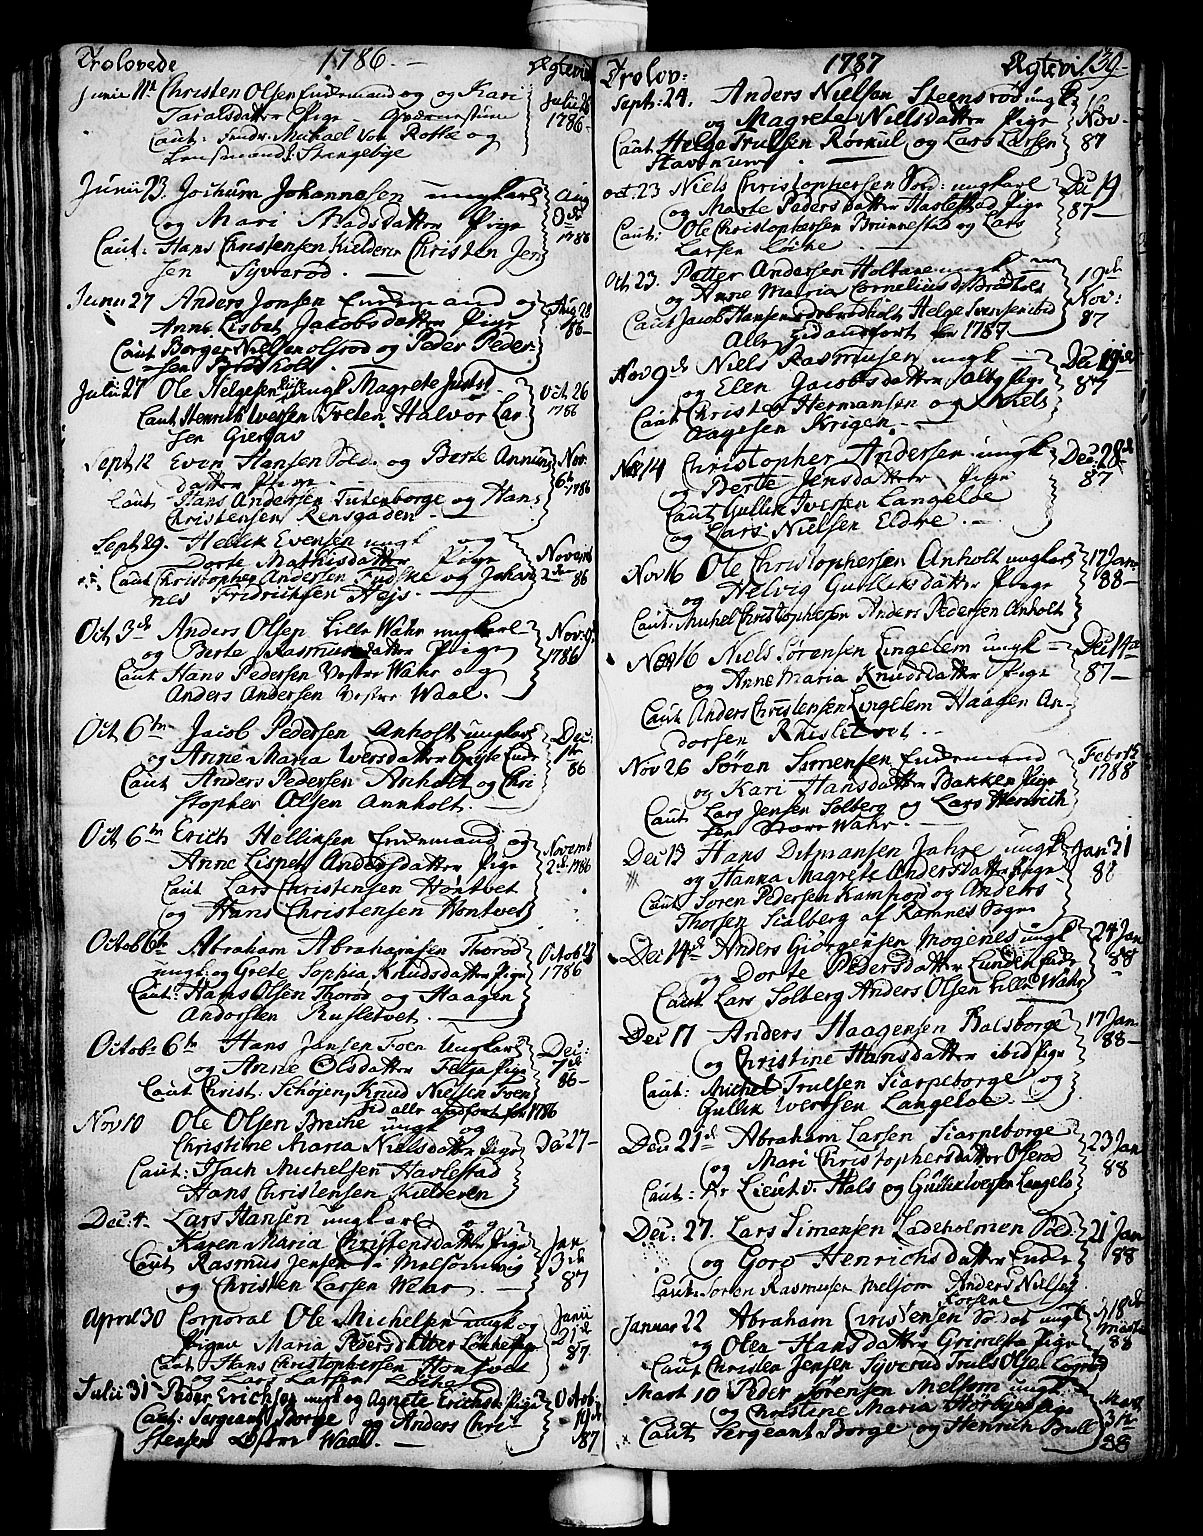 Trolovede 1786. Ægtevi
Junii 11te Christen Olsen Enkemand og og Kari Julii 28
Taraldsdatter Pige 1786
Caut: Michael Von Rottke og
Stangebye
Junii 23. Jochum Johannesen ungkarl Aug
og Mari Madsdatter Pige 1786
Caut: Hans Christensen Kielderen Christen Jen
sen Syverød.
Junii 27 Anders Jonsen Enkemand og Aug 28
Anne Lisbet Jacobsdatter Pige 86
Caut Børger Nielsen Olsrød og Peder Peder
sen Brødsholt
Julii 27 Ole Helgesen ungk Magrete Octr 26
Caut Henrich Iversen Freten Halvor Lar 1786
sen Giersøe
Sept 12 Even Hansen Sold. og Berte Annun Nov
datter Pige 6te 1786
Caut Hans Andersen Tutenborge og Hans
Christensen Rensgaden
Sept 29. Hellik Evensen ungk og Novemb
Dorte Mathisdatter Pige 2den 86
Caut Christopher Andersen og Johan
nes Fridrichsen Hejs.
Oct 3de Anders Olsen Lille Wahr ungkarl Nov: 9
og Berte Rasmusdatter Pige 1786
Caut Hans Pedersen Vestre Wahr og
Anders Andersen Vestre Waal.
Oct 6te Jacob Pedersen Anholt ungkarl Dec:
og Anne Maria Iversdatter Enke 1te 86
Caut Anders Pedersen Anholt og Chri
stopher Olsen Annholt.
Oct 6te Erich Hellisen Enkemand og Novemb
Anne Lispet Andersdatter Pige 2de 1786
Caut Lars Christensen Hontvet
og Hans Christensen Hontvet
Octob 6te Abraham Abrahamsen Thorød Octob 27
ungk og Grete Sophia Knudsdatter Pige 1786
Caut: Hans Olsen Thorød og Haagen
Andorsen Rusletvet.
Octob 6te Hans Jansen Foen Ungkarl Dec:
og Anne Olsdatter Pige 7de 86
Caut Christ. Schøjen, Knud Nielsen Foen
tid alle anført for 1786
Nov 10 Ole Olsen Breche ungk og
Christine Maria Nielsdatter Pige Dec 27
Caut: Isach Michelsen Havlestad
Hans Christensen Kielderen
Dec: 4 Lars Hansen ungkarl og
Karen Maria Christensdatter Pige Jan
Caut Rasmus Jensen i Melsomvig 3de
og Christen Larsen Wetar. 87
April 30 Corporal Ole Michelsen ungk og Junii
Pigen Maria Pedersdatter 21de
Caut Hans Christophersen Hontvet 87
og Lars Larsen
Julii 31 Peder Erichsen ungk og Agnete Erichsd. Pige Octob
Caut: Sergeant Borge og Anders Chri
stensen Østre Waal. 87
Trolov: 1787 Ægtevi 130
Sept: 24. Anders Nielsen Steensrød ungk 16
og Magrete Nielsdatter Pige Nov
Caut Helge Trulsen Rørkul og Lars Larsen 87
Stavnum
Oct 23 Niels Christophersen Sold: ungkarl Dec 19
og Marte Pedersdatter Havlestad Pige 87
Caut: Ole Christophersen Brunnestad og Lars
Larsen Løcke
Oct 23. Petter Andersen Holtane ungk 1ste
og Anne Maria Corneliusdr Brødsholt Nov:
Caut Jacob Hansen Helge Svensen ibid 87
Alle tid anført for 1787
Nov 9de Niels Rasmusen ungk Dec 19de
og Elen Jacobsdatter Pige 87
Caut Christen Hermansen og Niels
Aagesen Krigen
Nov 14 Christopher Andersen ungk Dec: 28de
og Berte Jensdatter Pige 87
Caut Gullik Iversen Langeloe
og Lars Nielsen Eldre.
Nov 16 Ole Christophersen Anholt ungkarl 17 Jan
og Helvig Gulleksdatter Pige 88
Caut: Michel Christophersen Anders Pedersen Anholt
Nov 16 Niels Sørensen Lingelem ungk Dec 14de
og Anne Maria Knudsdatter Pige 87
Caut Anders Christensen Lingelem Haagen An
dorsen Rhisletvet.
Nov 26 Søren Simensen Enkemand Febr 15
og Kari Hansdatter Bakken Pige 1788
Caut Lars Jensen Solberg og Lars Henrich
sen Store Wahr
Dec 13 Hans Ditmansen Jahre ungk Jan 31
og Hanna Magrete Andersdatter Pige 88
Caut Søren Pedersen Kamfiord og Anders
Thorsen Sialberg af Ramnes Sogn
Dec 14de Anders Giørgensen Mogenes ungk 24 Jan
og Dorte Pedersdatter Lunden Enke 88
Caut Lars Solberg Anders Olsen Lille Wahr
Dec 17 Anders Haagensen Balsborge 17 Jan.
og Christine Hansdatter ibid Pige 88
Caut: Michel Trulsen Siarpeborge og
Gullik Iversen Langeloe.
Dec: 21de Abraham Larsen Siarpeborge 23 Jan
og Mari Christophersdatter Olsrød 88
Caut: Hr Lieut v. Hals og Gullik Iversen Langelo
Dec: 27. Lars Simensen Ladeholmen Sold: 21 Jan
og Gorø Henrichsdatter Enke 88
Caut: Søren Rasmusen Melsom Anders Nielsen
Januar 22 Abraham Christensen Soldat ungk 18de
og Olea Hansdatter Grimestad Pige 88
Caut Christen Jensen Syverud Truls Olsen
Mart 10 Peder Sørensen Melsom ungk Mart
og Christine Maria Pige 31te
Caut Sergeant Borge og Henrich Bull 88